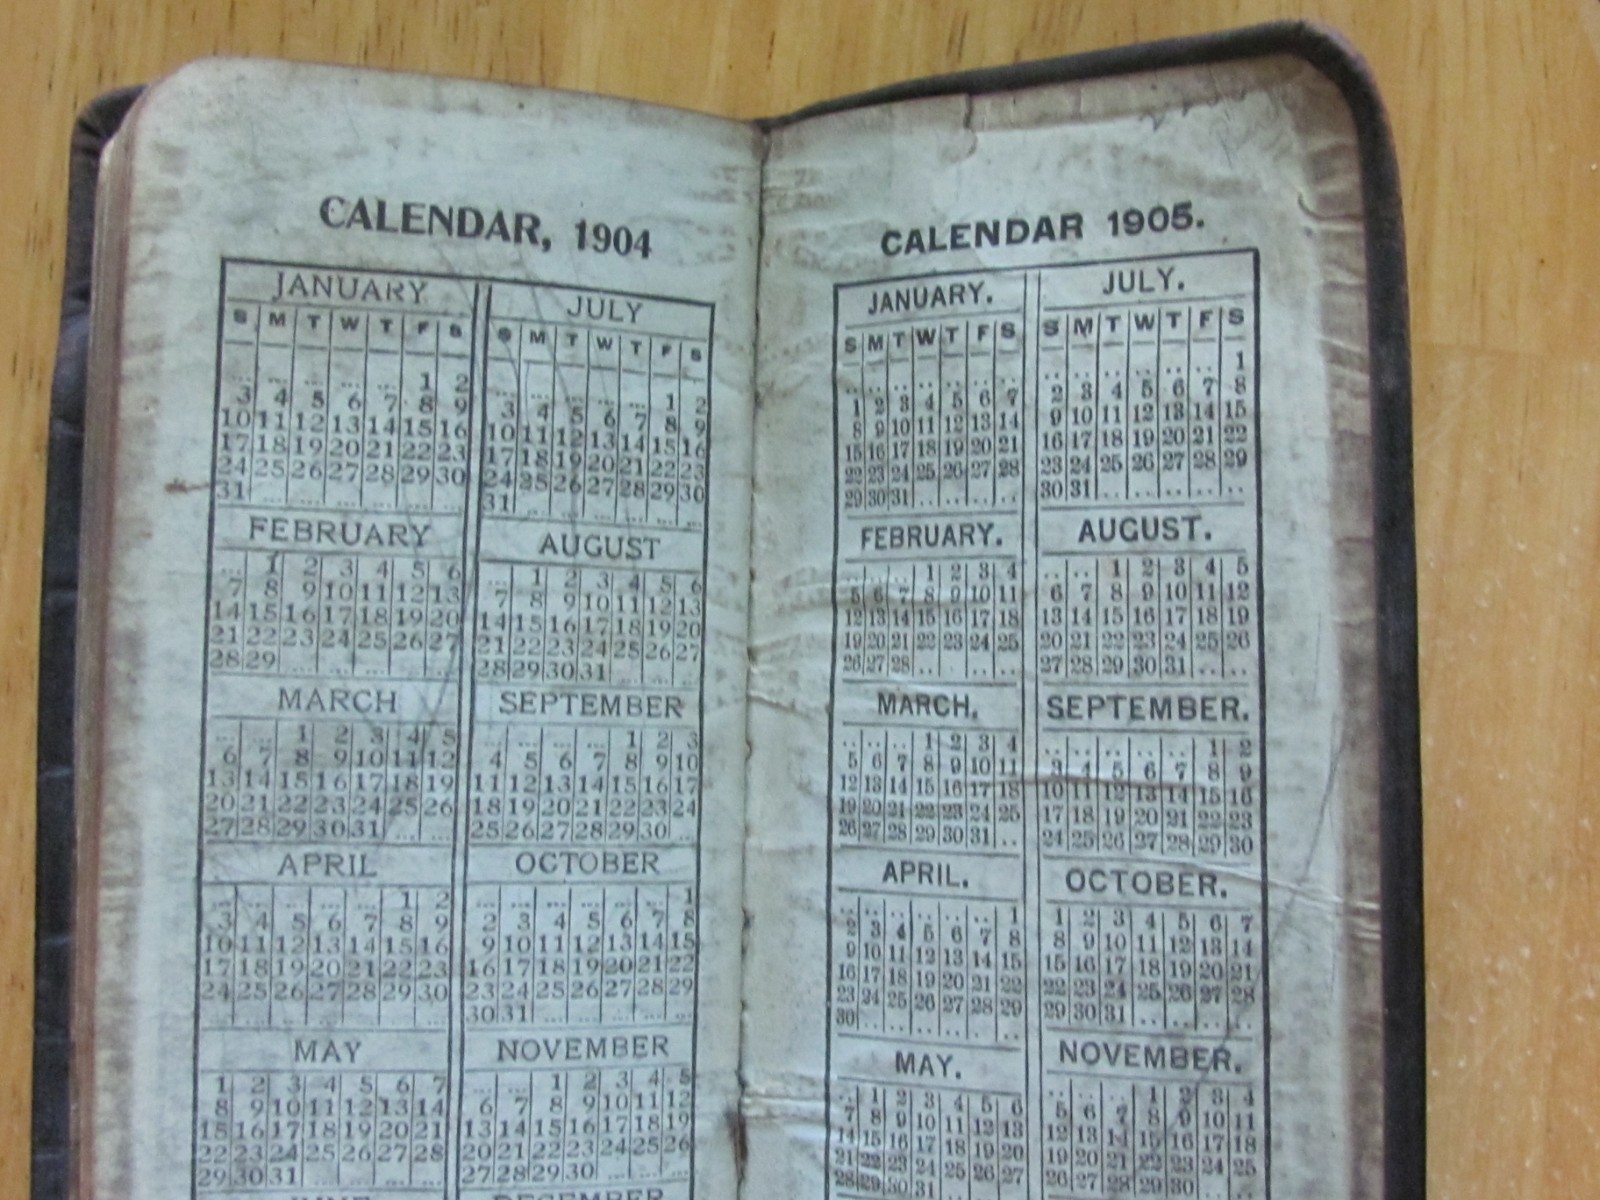 CALENDAR, 1904
JANUARY
S M T W T F S
... ... ... ... ... 1 2
3 4 5 6 7 8 9
10 11 12 13 14 15 16
17 18 19 20 21 22 23
24 25 26 27 28 29 30
31 ... ... ... ... ... ...
FEBRUARY
... 1 2 3 4 5 6
7 8 9 10 11 12 13
14 15 16 17 18 19 20
21 22 23 24 25 26 27
28 29 ... ... ... ... ...
MARCH
... ... 1 2 3 4 5
6 7 8 9 10 11 12
13 14 15 16 17 18 19
20 21 22 23 24 25 26
27 28 29 30 31 ... ...
APRIL
... ... ... ... ... 1 2
3 4 5 6 7 8 9
10 11 12 13 14 15 16
17 18 19 20 21 22 23
24 25 26 27 28 29 30
... ... ... ... ... ... ...
MAY
1 2 3 4 5 6 7
8 9 10 11 12 13 14
15 16 17 18 19 20 21
22 23 24 25 26 27 28
29 30 31 ... ... ... ...
JULY
S M T W T F S
... ... ... ... ... 1 2
3 4 5 6 7 8 9
10 11 12 13 14 15 16
17 18 19 20 21 22 23
24 25 26 27 28 29 30
31 ... ... ... ... ... ...
AUGUST
... 1 2 3 4 5 6
7 8 9 10 11 12 13
14 15 16 17 18 19 20
21 22 23 24 25 26 27
28 29 30 31 ... ... ...
SEPTEMBER
... ... ... ... 1 2 3
4 5 6 7 8 9 10
11 12 13 14 15 16 17
18 19 20 21 22 23 24
25 26 27 28 29 30 ...
OCTOBER
... ... ... ... ... ... 1
2 3 4 5 6 7 8
9 10 11 12 13 14 15
16 17 18 19 20 21 22
23 24 25 26 27 28 29
30 31 ... ... ... ... ...
NOVEMBER
... ... 1 2 3 4 5
6 7 8 9 10 11 12
13 14 15 16 17 18 19
20 21 22 23 24 25 26
27 28 29 30 ... ... ...
DECEMBER
CALENDAR 1905.
JANUARY.
S M T W T F S
.. .. .. .. .. .. ..
1 2 3 4 5 6 7
8 9 10 11 12 13 14
15 16 17 18 19 20 21
22 23 24 25 26 27 28
29 30 31 .. .. .. ..
FEBRUARY.
.. .. .. 1 2 3 4
5 6 7 8 9 10 11
12 13 14 15 16 17 18
19 20 21 22 23 24 25
26 27 28 .. .. .. ..
MARCH.
.. .. .. 1 2 3 4
5 6 7 8 9 10 11
12 13 14 15 16 17 18
19 20 21 22 23 24 25
26 27 28 29 30 31 ..
APRIL.
.. .. .. .. .. .. 1
2 3 4 5 6 7 8
9 10 11 12 13 14 15
16 17 18 19 20 21 22
23 24 25 26 27 28 29
30 .. .. .. .. .. ..
MAY.
.. 1 2 3 4 5 6
7 8 9 10 11 12 13
14 15 16 17 18 19 20
21 22 23 24 25 26 27
28 29 30 31 .. .. ..
JULY.
S M T W T F S
.. .. .. .. .. .. 1
2 3 4 5 6 7 8
9 10 11 12 13 14 15
16 17 18 19 20 21 22
23 24 25 26 27 28 29
30 31 .. .. .. .. ..
AUGUST.
.. .. 1 2 3 4 5
6 7 8 9 10 11 12
13 14 15 16 17 18 19
20 21 22 23 24 25 26
27 28 29 30 31 .. ..
SEPTEMBER.
.. .. .. .. .. 1 2
3 4 5 6 7 8 9
10 11 12 13 14 15 16
17 18 19 20 21 22 23
24 25 26 27 28 29 30
OCTOBER.
1 2 3 4 5 6 7
8 9 10 11 12 13 14
15 16 17 18 19 20 21
22 23 24 25 26 27 28
29 30 31 .. .. .. ..
NOVEMBER.
.. .. .. 1 2 3 4
5 6 7 8 9 10 11
12 13 14 15 16 17 18
19 20 21 22 23 24 25
26 27 28 29 30 .. ..